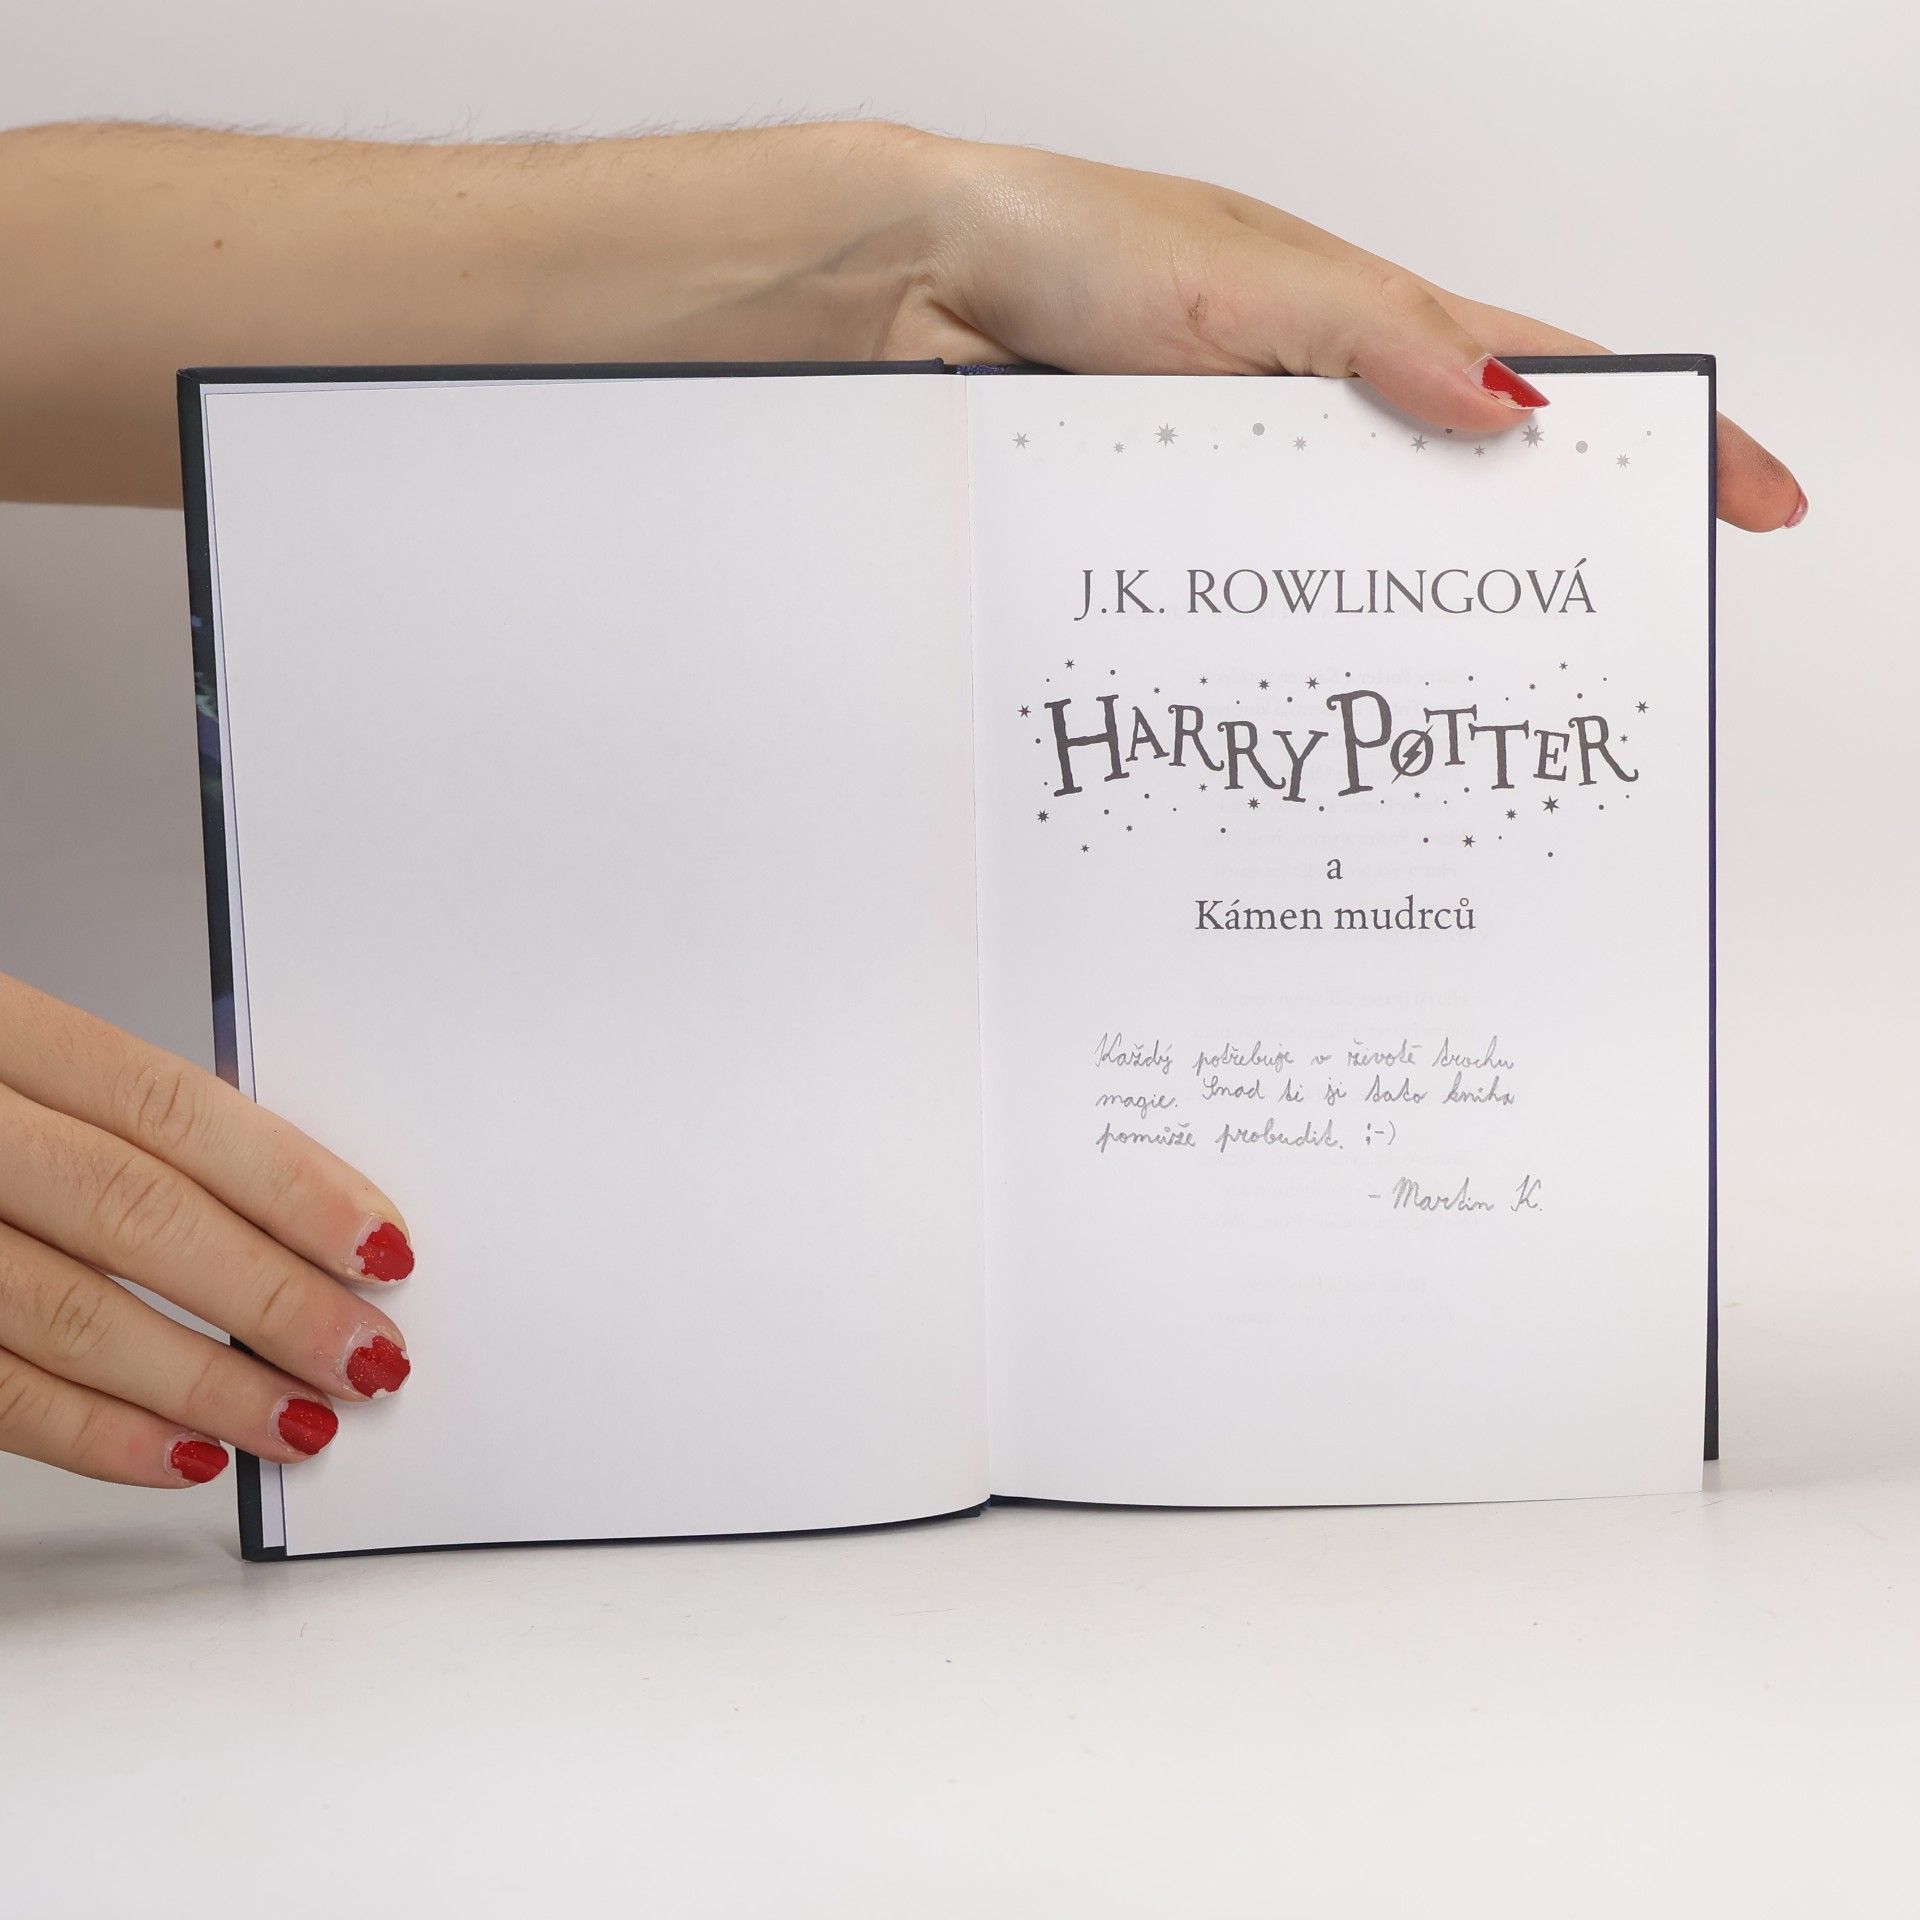 J.K. ROWLINGOVÁ
HARRY POTTER
a
Kámen mudrců
Každý potřebuje v životě trochu
magie. Snad ti ji tato kniha
pomůže probudit. ;-)
- Martin K.